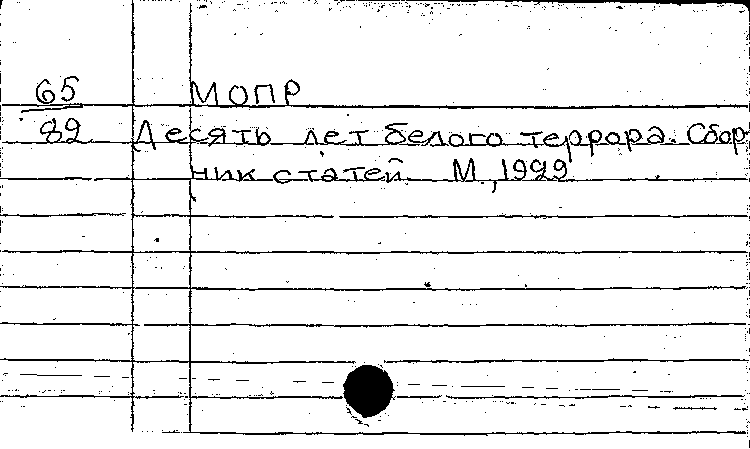 65 МОПР
82 Десять лет белого террора. Сбор
ник статей. М., 1929